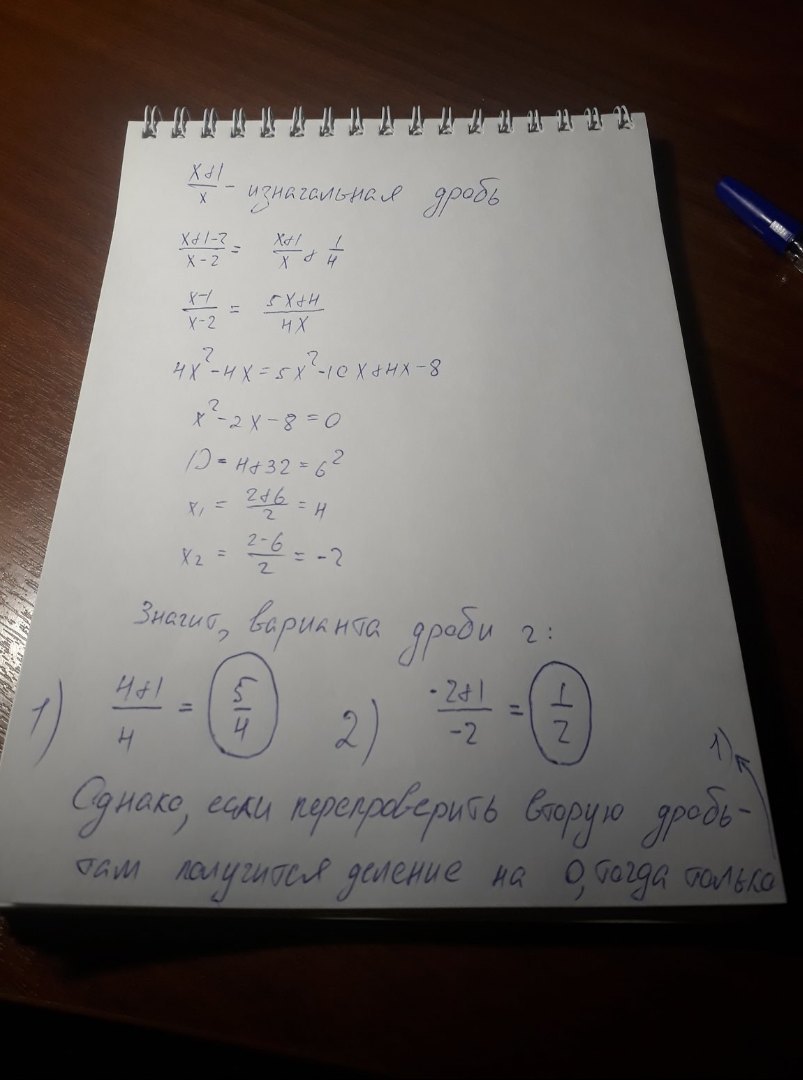 x+1/x - изначальная дробь
x+1-2/x-2 = x+1/x + 1/4
x-1/x-2 = 5x+4/4x
4x²-4x=5x²-10x+4x-8
x²-2x-8=0
D=4+32=6²
x₁ = 2+6/2 = 4
x₂ = 2-6/2 = -2
Значит, варианта дроби 2:
1) 4+1/4 = 5/4 2) -2+1/-2 = 1/2
Однако, если перепроверить вторую дробь-
там получится деление на 0, тогда только
1)